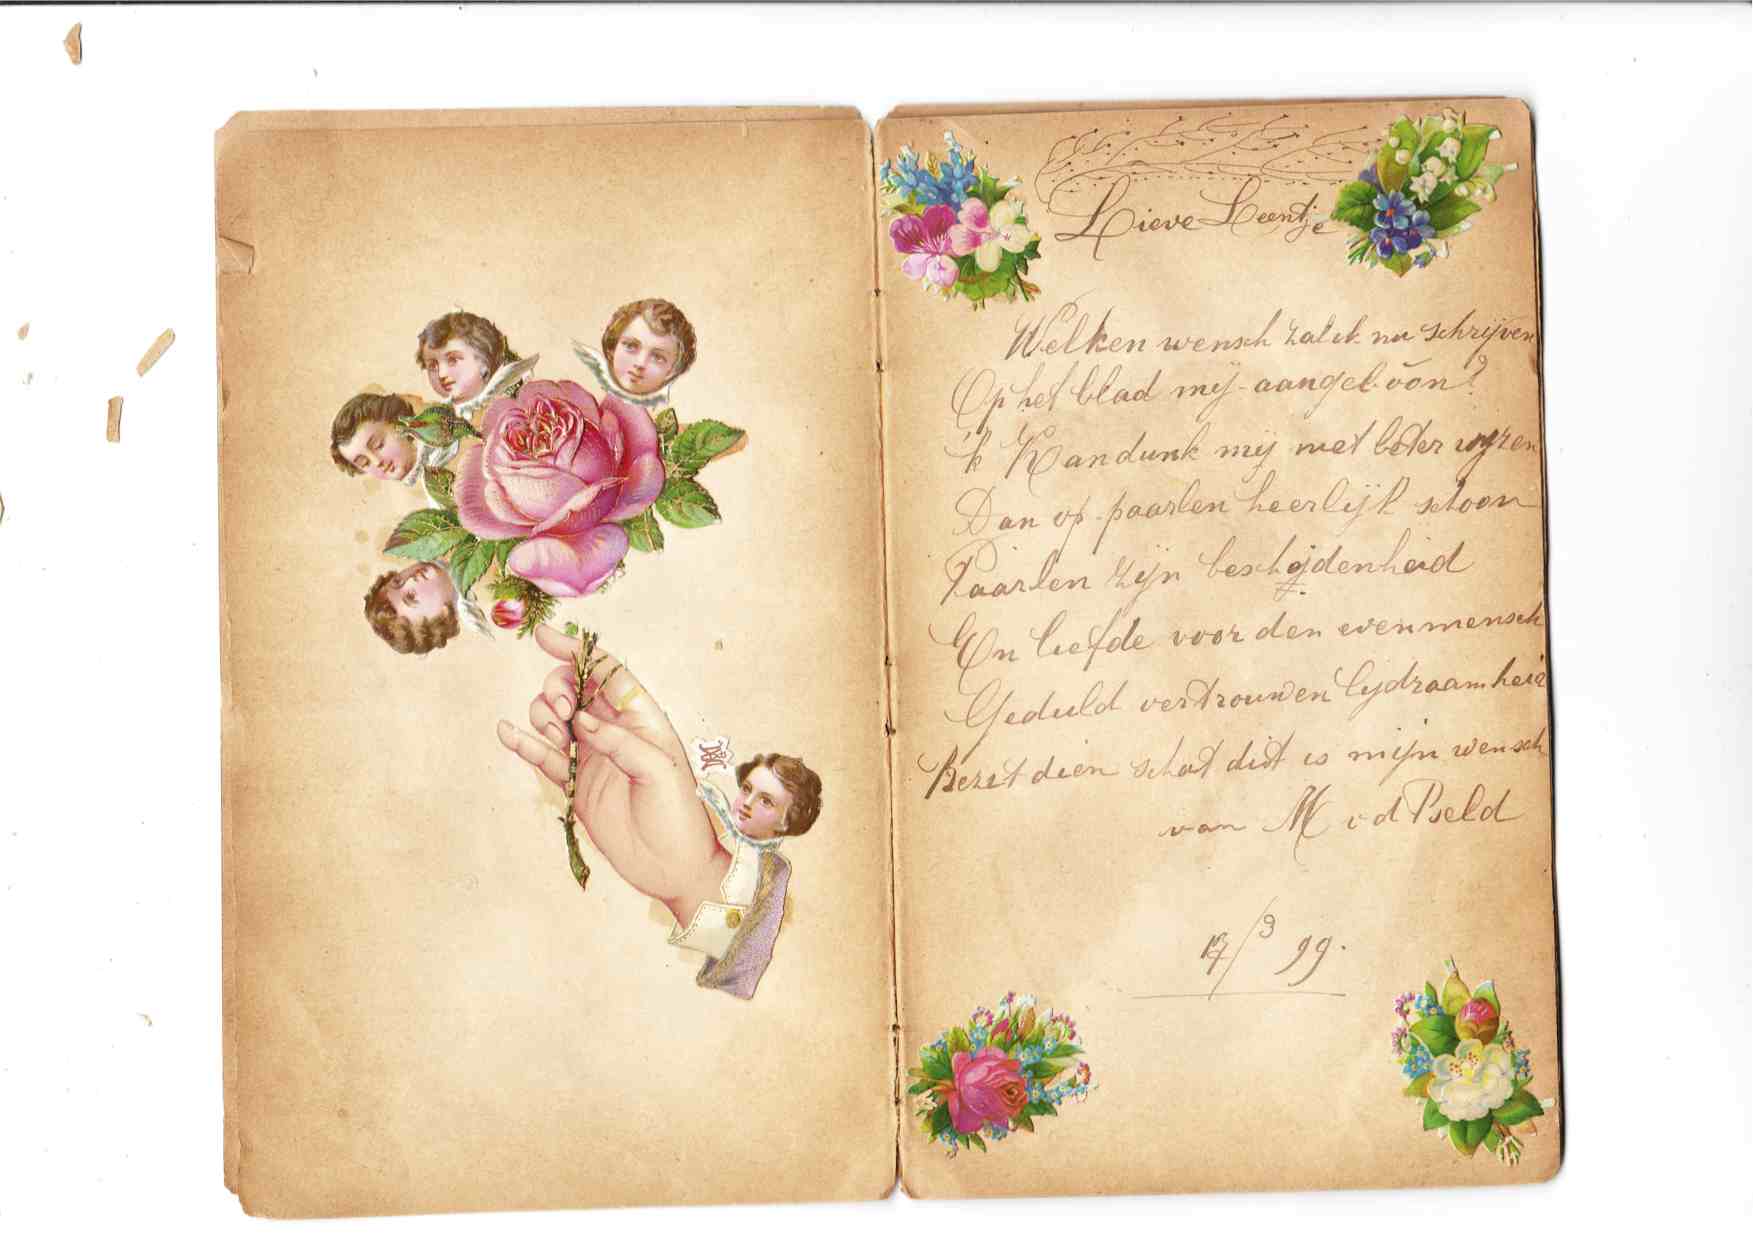 Lieve Leentje
Welken wensch zal ik nu schrijven
Op het blad mij aangeboôn?
'k Kan dunk mij niet beter wyzen
Dan op paarlen heerlijk schoon
Paarlen zijn beschejdenheid
En liefde voor den evenmensch
Geduld vertrouwen lijdzaamheid
Bezit dien schat dit is mijn wensch
van M v d
17/3 99.